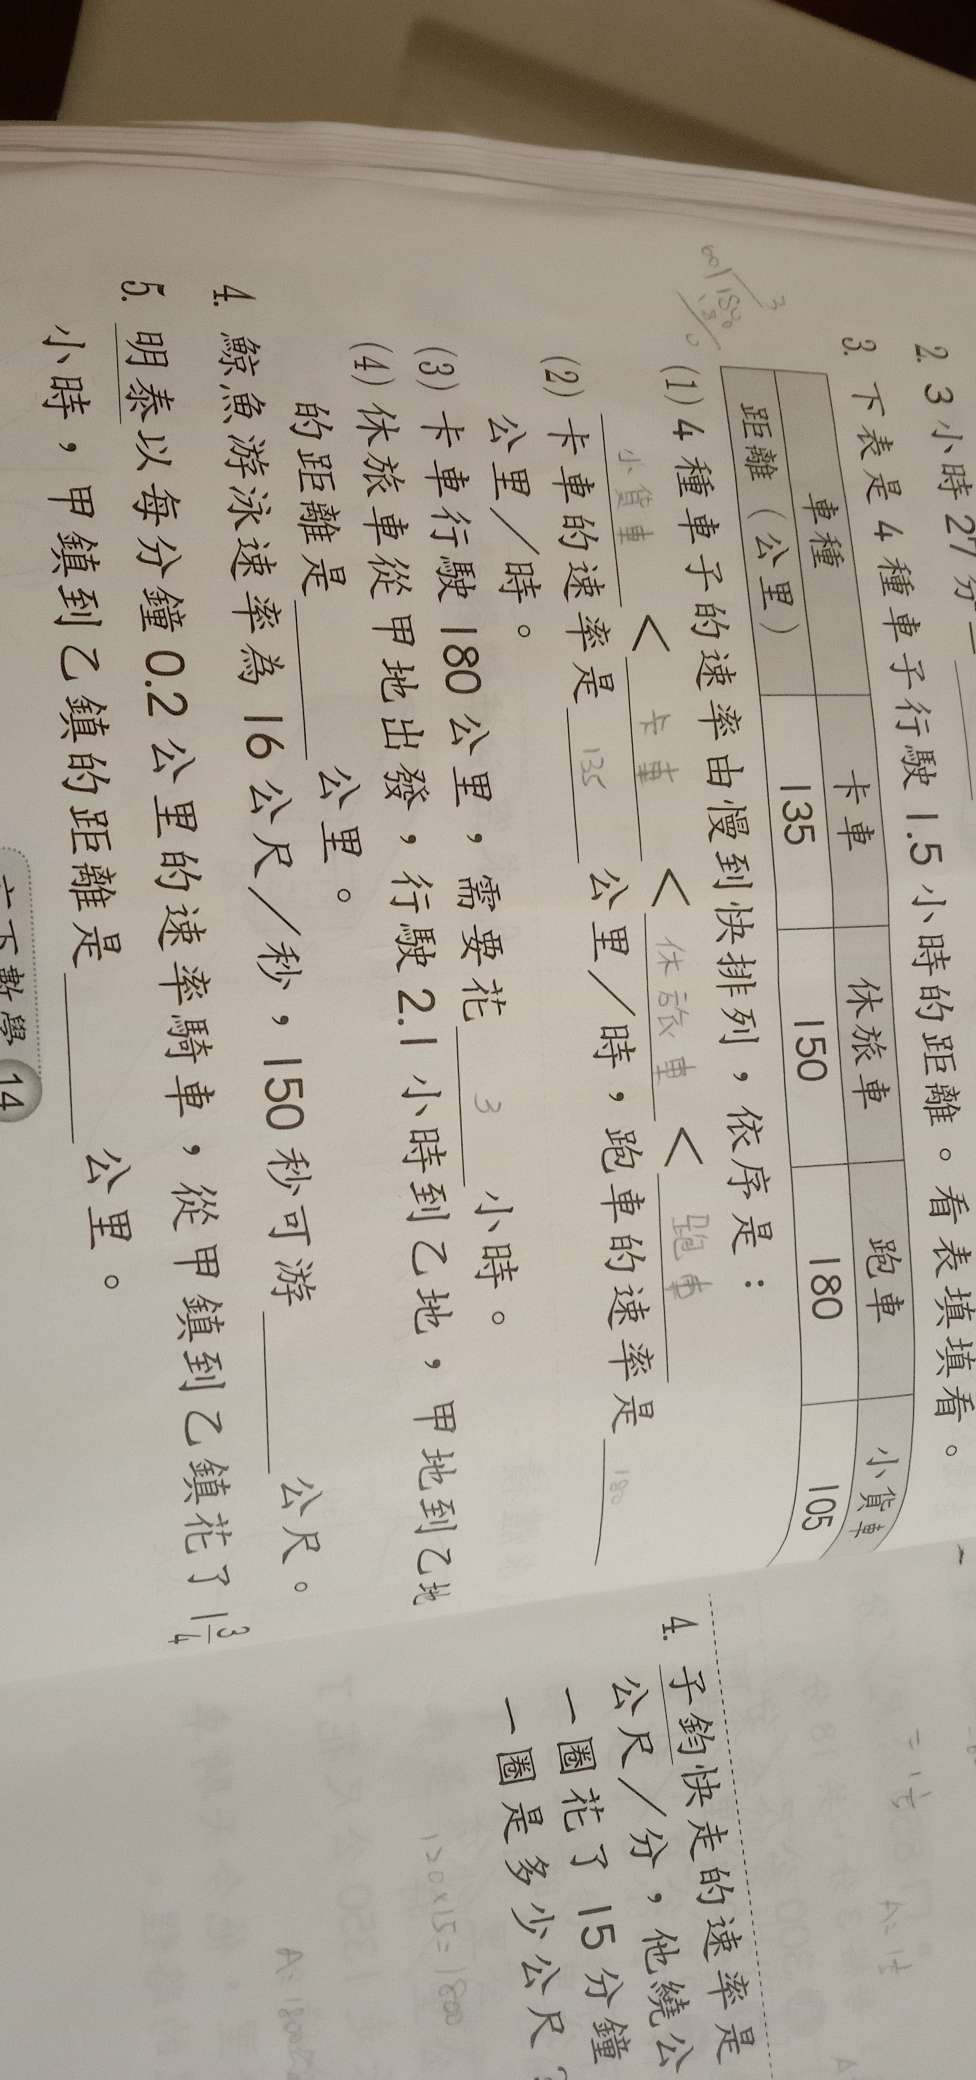 2. 3小時27分=
3. 下表是4種車子行駛1.5小時的距離。看表填填看。
車種 卡車 休旅車 跑車 小貨車
距離（公里） 135 150 180 105
(1) 4種車子的速率由慢到快排列，依序是：
小貨車 < 卡車 < 休旅車 < 跑車
(2) 卡車的速率是 135 公里／時，跑車的速率是 180
公里／時。
(3) 卡車行駛180公里，需要花 3 小時。
(4) 休旅車從甲地出發，行駛2.1小時到乙地，甲地到乙地
的距離是 公里。
4. 鯨魚游泳速率為16公尺／秒，150秒可游 公尺。
5. 明泰以每分鐘0.2公里的速率騎車，從甲鎮到乙鎮花了1 3/4
小時，甲鎮到乙鎮的距離是 公里。
六下數學 14
4. 子鈞快走的速率是
公尺／分，他繞公
一圈花了15分鐘
一圈是多少公尺？
120×15=1800